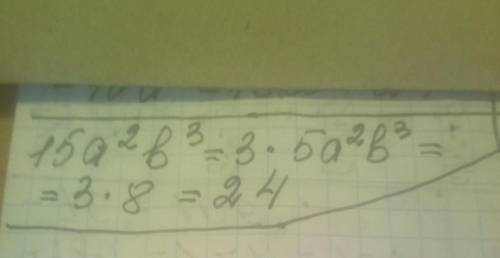 15a²b³ = 3 · 5a²b³ =
= 3 · 8 = 24